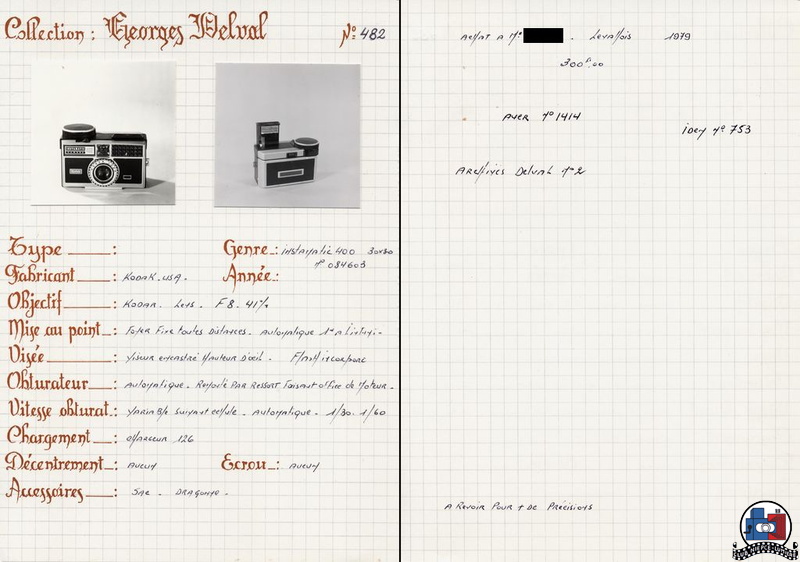 Collection : Georges Delval Nº 482
Type : Genre : instamatic 400 30x30
nº 084603
Fabricant : KODAK. USA. Année :
Objectif : KODAR. Lens. F 8. 41 m/m
Mise au point : Foyer Fixe toutes Distances. Automatique 1m à l'infini.
Visée : Viseur encastré Hauteur D'oeil. Flash incorporé
Obturateur : Automatique. Remonté PAR RESSORT Faisant office de Moteur.
Vitesse obturat. : VARIABLE Suivant cellule. Automatique. 1/30. 1/60
Chargement : chargeur 126
Décentrement : AUCUN Ecrou : AUCUN
Accessoires : SAC. DRAGONNE.
Achat à Mr . Levallois 1979
300F.00
AVEC nº 1414
idem nº 753
ARCHIVES Delval nº 2
A Revoir Pour + DE Précisions